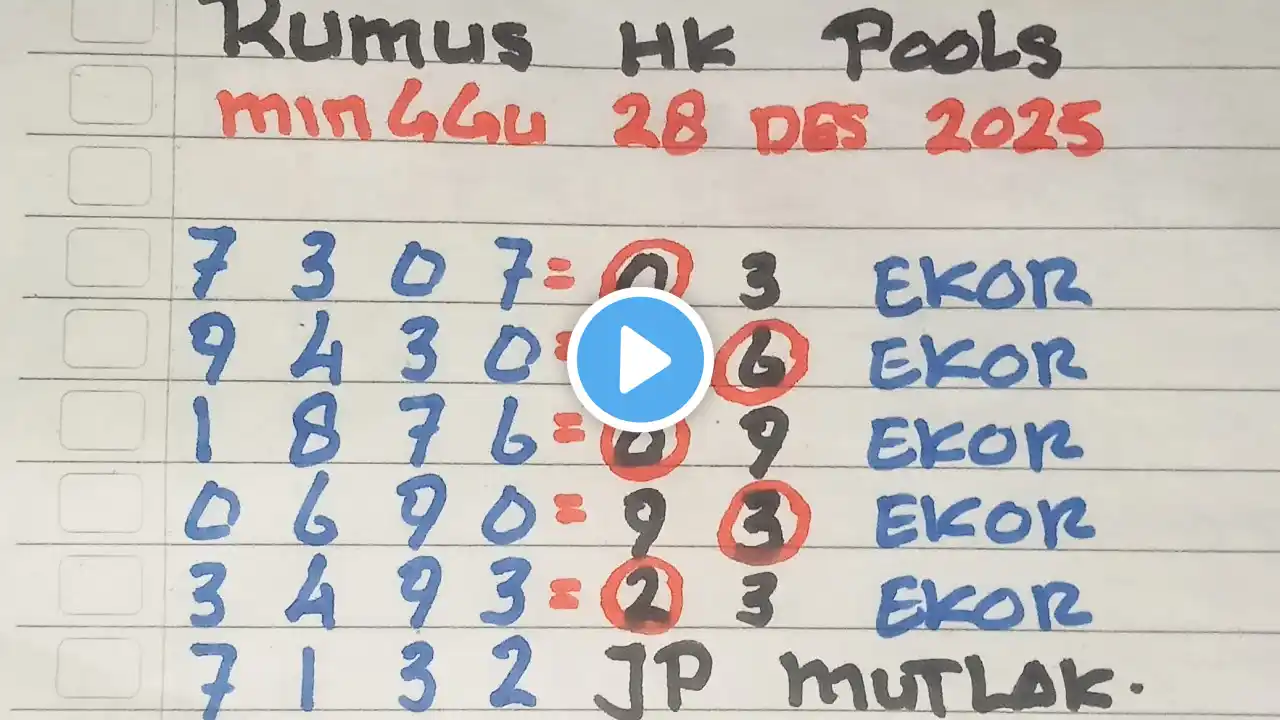 Rumus HK Pools
minGGu 28 DES 2025
7 3 0 7 = 0 3 EKOR
9 4 3 0 = 6 EKOR
1 8 7 6 = 0 9 EKOR
0 6 9 0 = 9 3 EKOR
3 4 9 3 = 2 3 EKOR
7 1 3 2 JP MUTLAK.